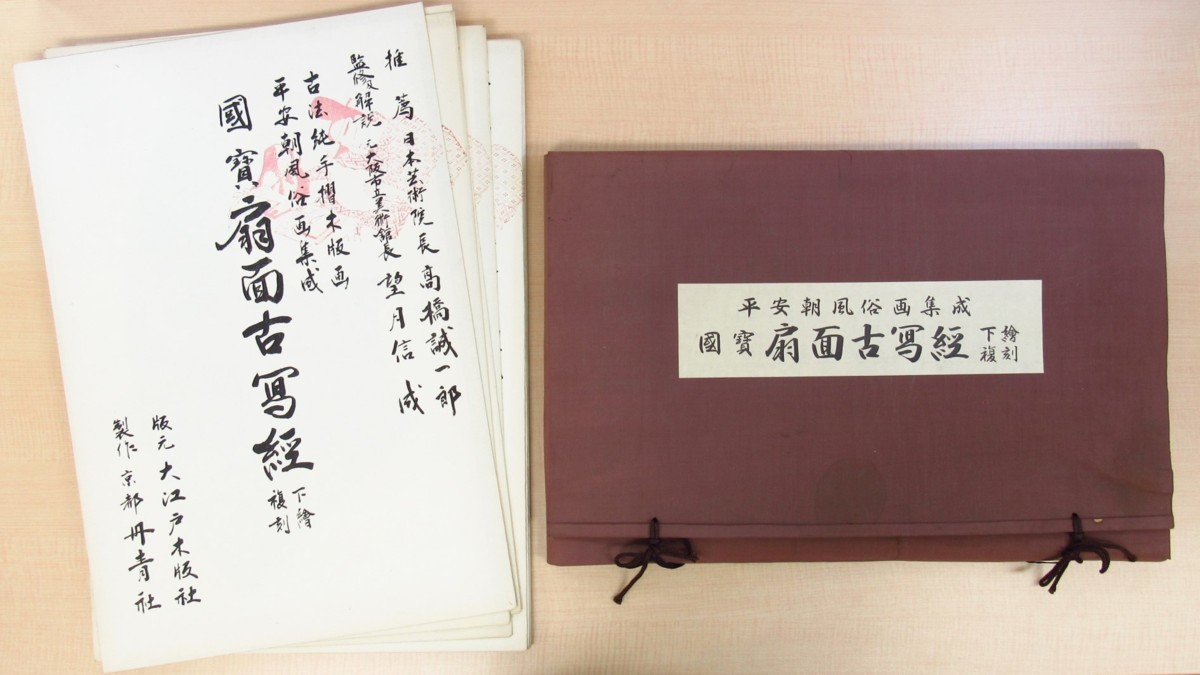 推薦 日本芸術院長 高橋誠一郎
監修及解説 元大阪市立美術館長 望月信成
古法純手摺木版画
平安朝風俗画集成
國寳扇面古寫經 下繪複刻
版元 大江戸木版社
製作 京都丹青社
平安朝風俗画集成
國寳扇面古寫經 下繪複刻